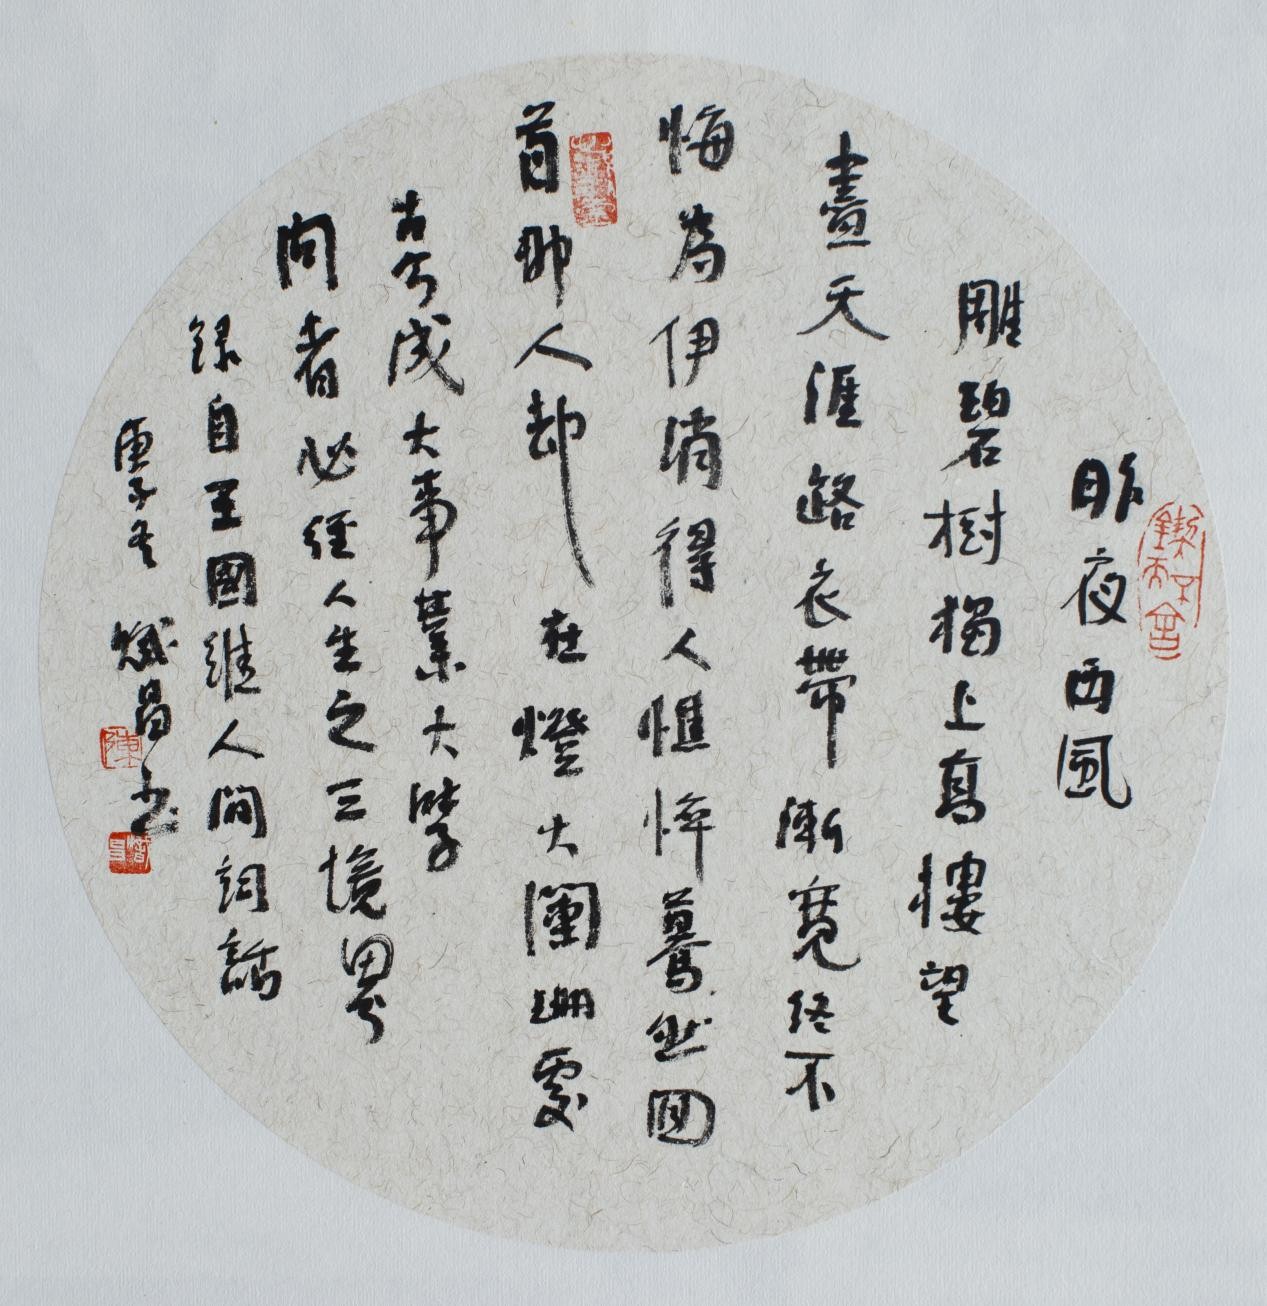 昨夜西風
雕碧樹獨上高樓望
盡天涯路衣帶漸寬終不
悔為伊消得人憔悴驀然回
首那人却在燈火闌珊處
古今成大事業大學
问者必经人生之三境界
録自王國維人间詞話
庚子冬 斌昌书